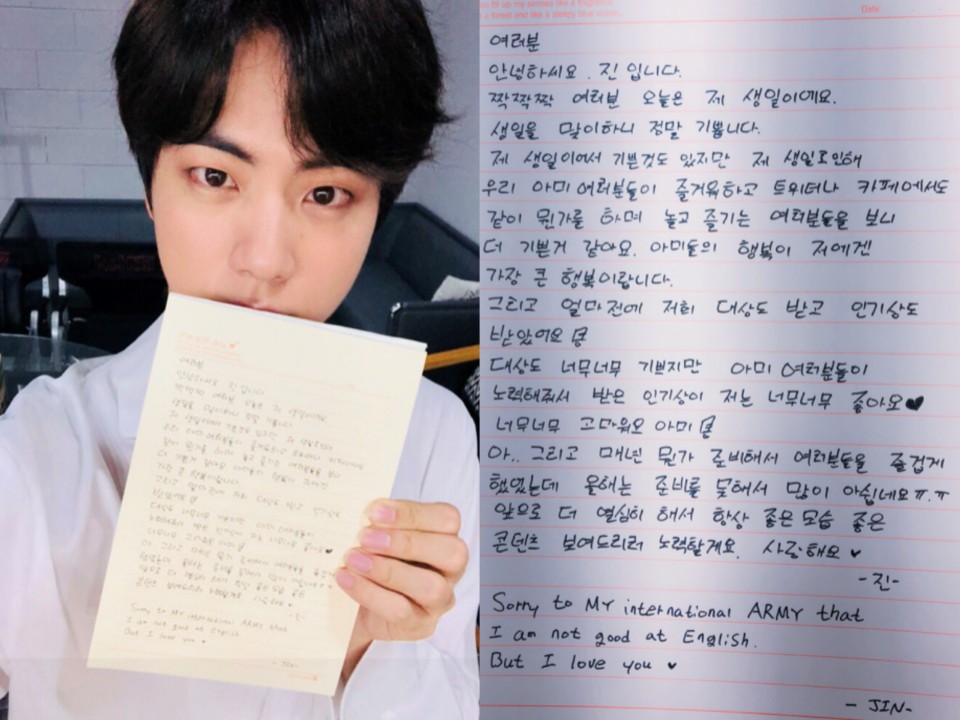 Sorry to MY international ARMY that
I am not good at English
But I love you ♥
- JIN-
fill up my senses like a fragrance
a forest and like a sleepy blue
Date
여러분
안녕하세요. 진입니다.
짝짝짝 여러분 오늘은 제 생일이에요.
생일을 맞이하니 정말 기쁩니다.
제 생일이어서 기쁜것도 있지만 제 생일로인해
우리 아미여러분들이 즐거워하고 트위터나 카페에서도
같이 뭔가를 하며 놀고 즐기는 여러분들을 보니
더 기쁜거 같아요. 아미들의 행복이 저에겐
가장 큰 행복이랍니다.
그리고 얼마전에 저희 대상도 받고 인기상도
받았어요
대상도 너무너무 기쁘지만 아미 여러분들이
노력해줘서 받은 인기상이 저는 너무너무 좋아요♥
너무너무 고마워요 아미
아.. 그리고 매년 뭔가 준비해서 여러분들을 즐겁게
했었는데 올해는 준비를 못해서 많이 아쉽네요ㅠ.ㅠ
앞으로 더 열심히 해서 항상 좋은모습 좋은
콘텐츠 보여드리려 노력할게요. 사랑해요 ♥
-진-
Sorry to MY international ARMY that
I am not good at English.
But I love you ♥
- JIN-